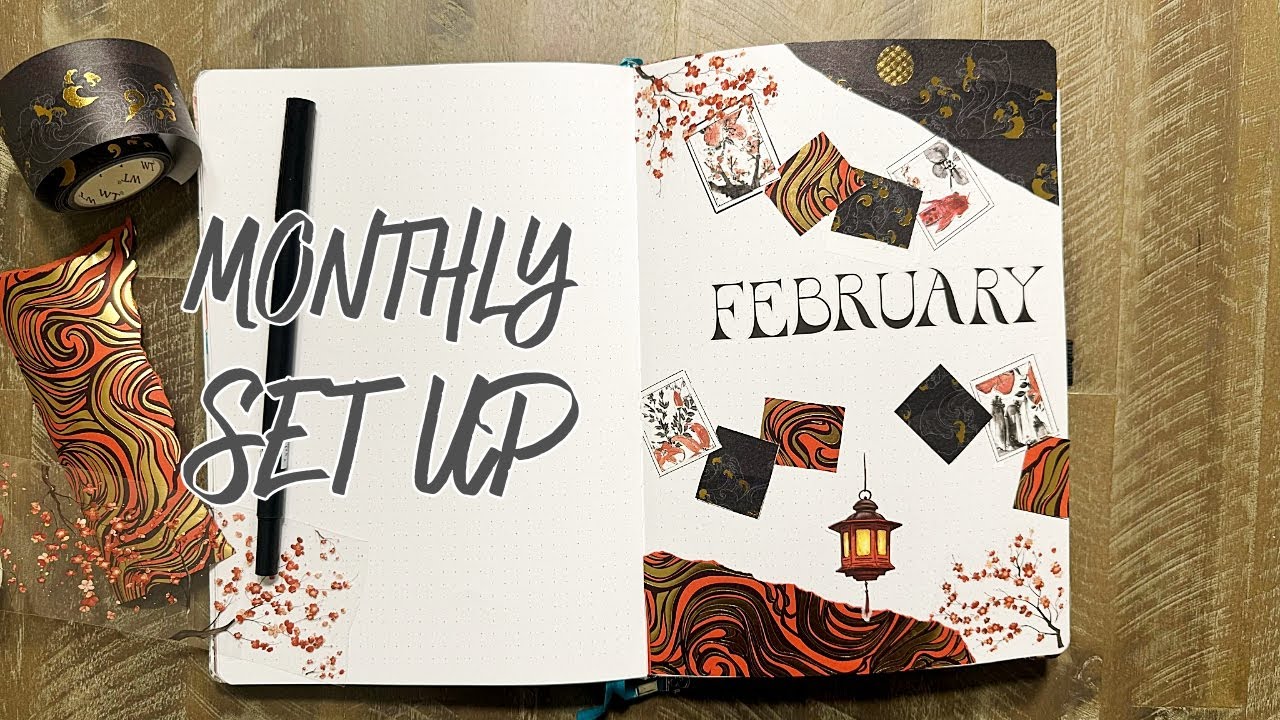 MONTHLY
SET UP
FEBRUARY
WT
WT